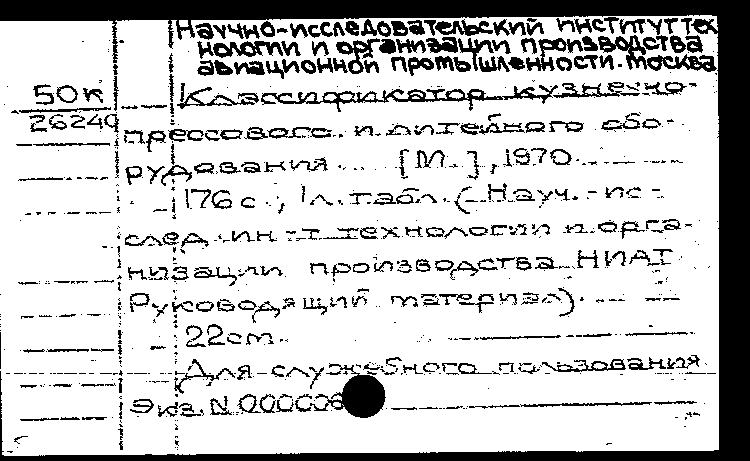 Научно-исследовательский институт тех
нологии и организации производства
авиационной промышленности. Москва
50к
Классификатор кузнечно-
26240
прессового и литейного обо-
рудования. [М.], 1970.
176 с., 1 л. табл. (Науч.-ис-
след. ин-т технологии и орга-
низации производства НИАТ
Руководящий материал).
22 см.
Для служебного пользования
Экз. N 000006